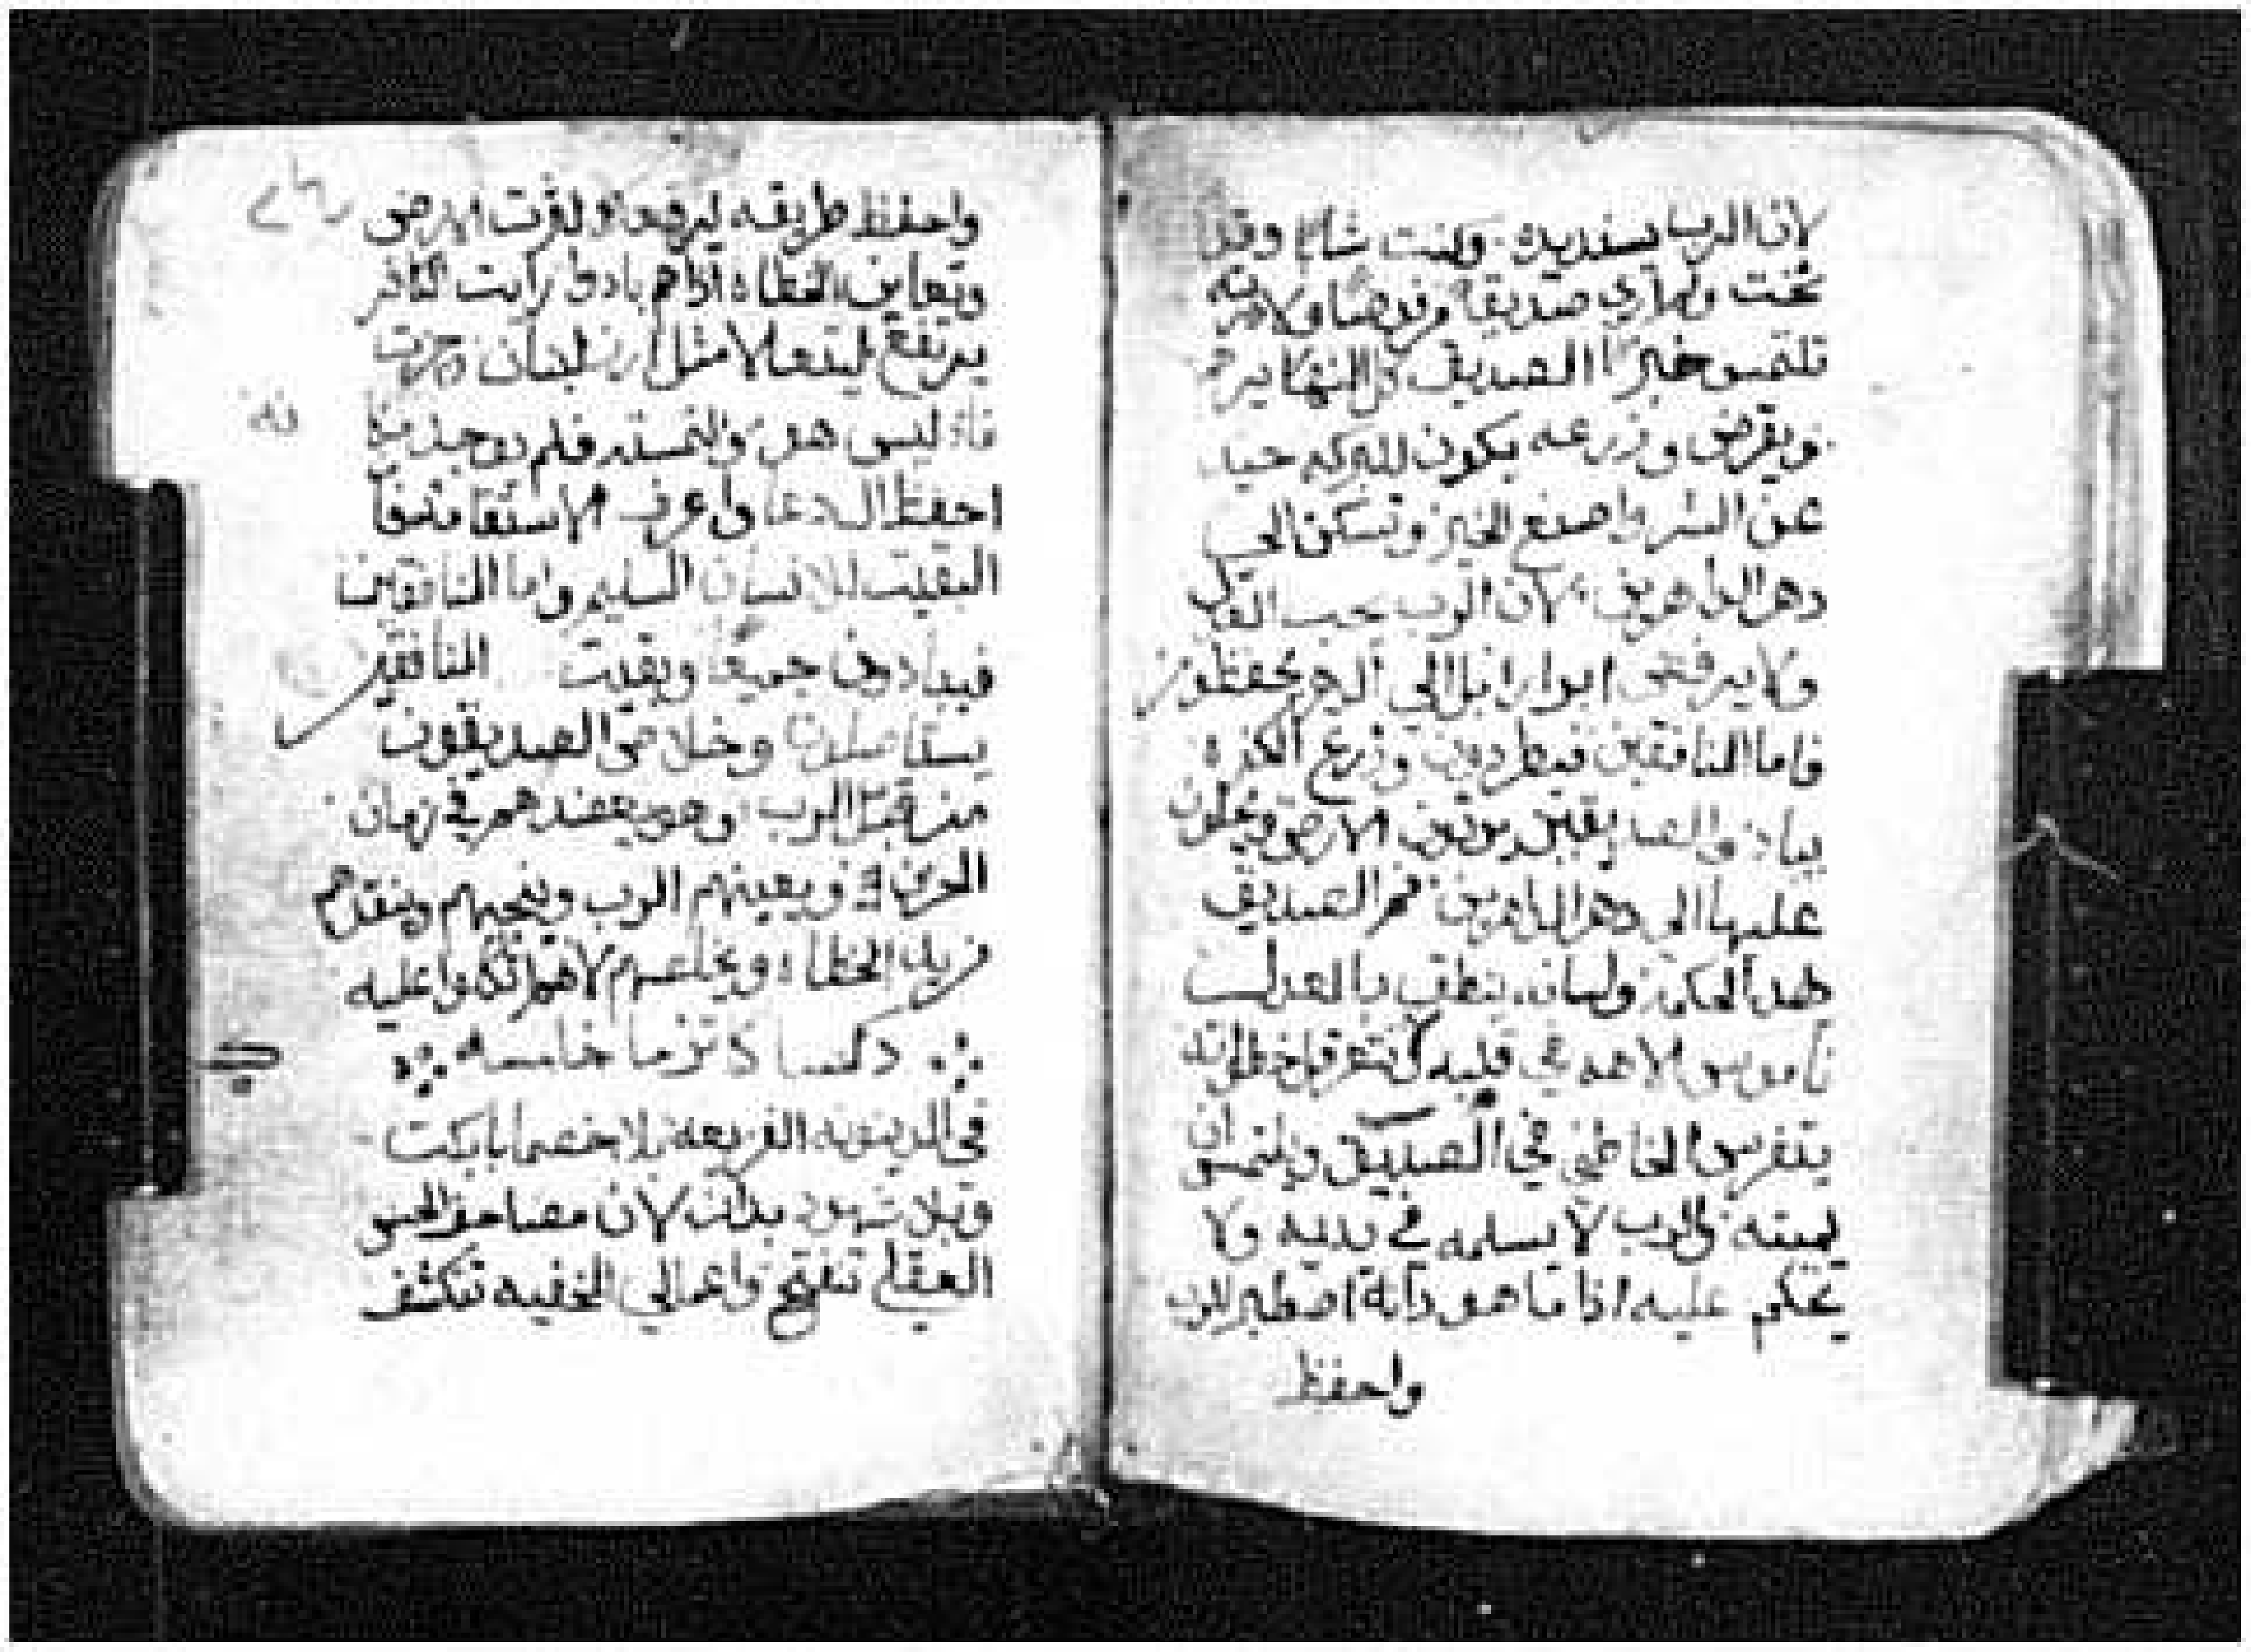 لان الرب يسند يده وكنت شابا وقد
شخت ولم ارى صديقا مرفوضا ولا ذريته
تلتمس خبزا الصديق كل النهار يرحم
ويقرض وزرعه يكون للبركه حيد
عن الشر واصنع الخير وتسكن الى
دهر الداهرين لان الرب يحب العدل
ولا يرفض ابراره الى الدهر يحفظون
فاما المنافقين فيطردون وزرع الكفره
يباد والصديقين يرثون الارض ويحلون
عليها الى دهر الداهرين فم الصديق
هذ الحكمه ولسانه ينطق بالعدل
ناموس الاهه في قلبه لا تتعرقل خطواته
يتفرس الخاطي في الصديق ويلتمس ان
يميته والرب لا يسلمه في يديه ولا
يحكم عليه اذا ما هو دانه اصطبر للرب
واحفظ
واحفظ طريقه ليرفعك ولترث الارض
وتعاين الخطاه اذا هم بادوا رايت الكافر
يرتفع ليتعالا مثل ارز لبنان وجزت
فاذ ليس هو والتمسته فلم يوجد مكانه
احفظ الدعا واعرف الاستقامه فان
البقيت للانسان السليم واما المنافقين
فيبادون جميعا وبقيت المنافقين
يستاصلون وخلاص الصديقون
من قبل الرب وهو يعضدهم في زمان
الحزن ويعينهم الرب وينجيهم وينقذهم
من يد الخطاه ويخلصهم لانهم اتكلوا عليه
دكصا كاتزما خامسه
في الدينونه الفزيعه بلا خصما بابكت
وبلا شهود بدان لان مصاحف الحس
العقلي تنفتح واعمالي الخفيه تنكشف